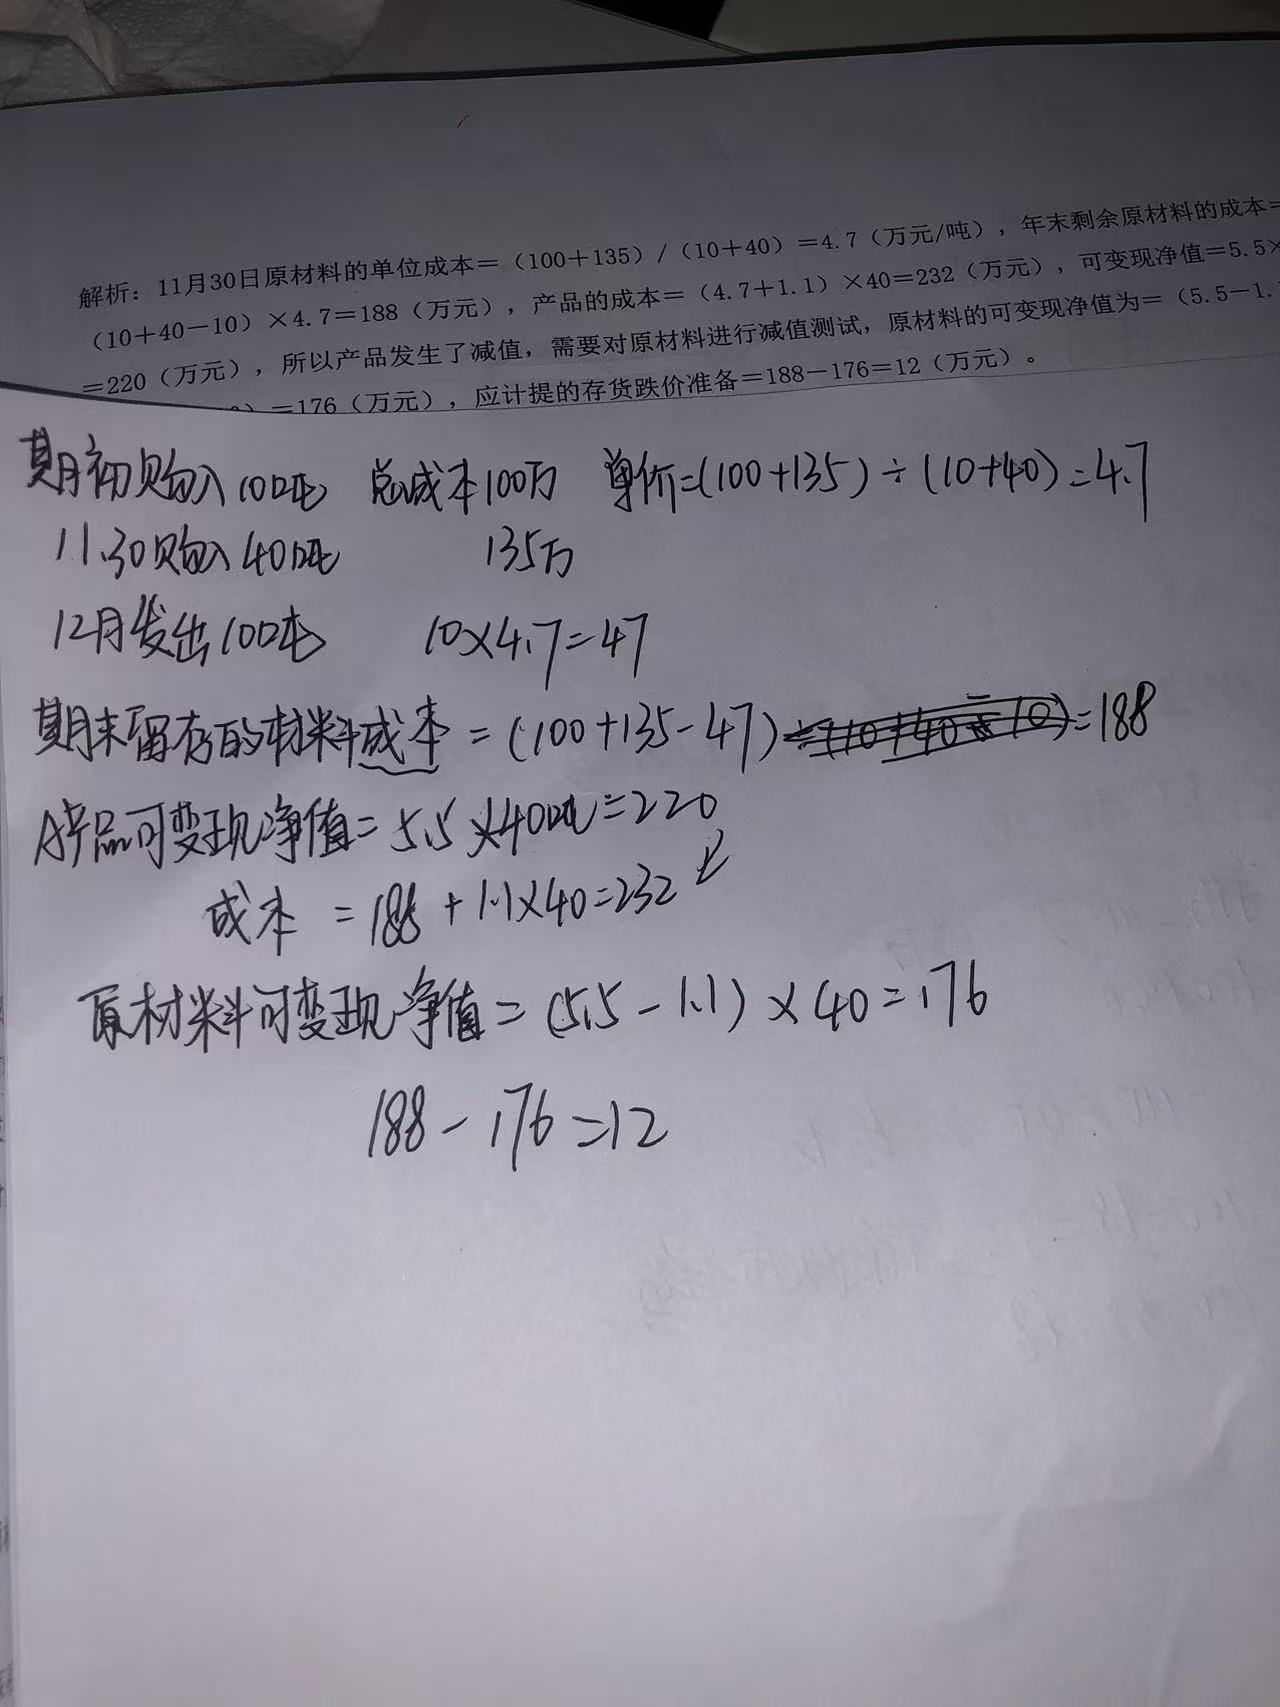 解析：11月30日原材料的单位成本＝（100＋135）/（10＋40）＝4.7（万元/吨），年末剩余原材料的成本＝
（10＋40－10）×4.7＝188（万元），产品的成本＝（4.7＋1.1）×40＝232（万元），可变现净值＝5.5×
＝220（万元），所以产品发生了减值，需要对原材料进行减值测试，原材料的可变现净值为＝（5.5－1.
）＝176（万元），应计提的存货跌价准备＝188－176＝12（万元）。
期初购入10吨 总成本100万 单价=(100+135)÷(10+40)=4.7
11.30购入40吨 135万
12月发出10吨 10×4.7=47
期末留存的材料成本=(100+135-47)=188
A产品可变现净值=5.5×40吨=220
成本=188+1.1×40=232
原材料可变现净值=(5.5-1.1)×40=176
188-176=12